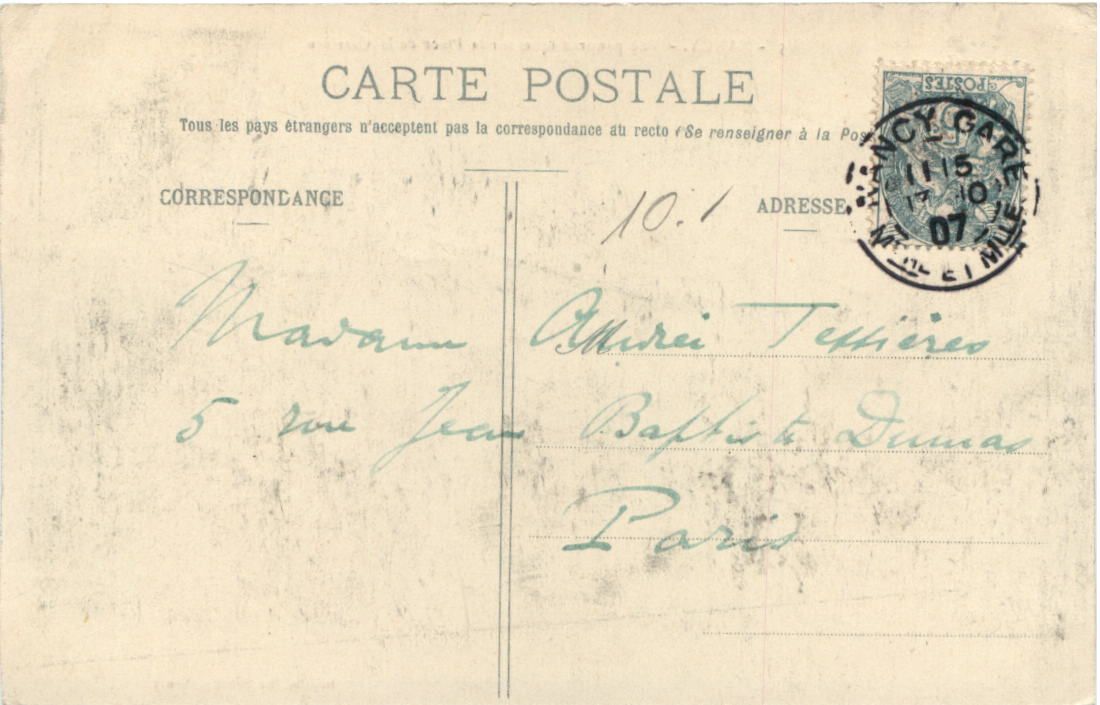 CARTE POSTALE
Tous les pays étrangers n'acceptent pas la correspondance au recto (Se renseigner à la Pos
CORRESPONDANCE
ADRESSE
10.1
POSTES
NANCY GARE
11 15
17 10
07
MTHE ET MLLE
Madame André Tessières
5 rue Jean Baptiste Dumas
Paris